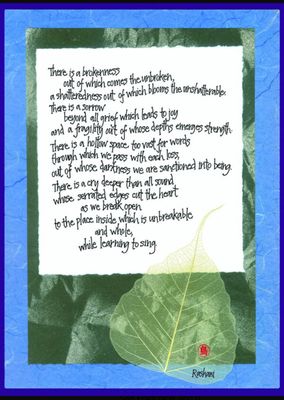 There is a brokenness
out of which comes the unbroken,
a shatteredness out of which blooms the unshatterable.
There is a sorrow
beyond all grief which leads to joy
and a fragility out of whose depths emerges strength.
There is a hollow space too vast for words
through which we pass with each loss,
out of whose darkness we are sanctioned into being.
There is a cry deeper than all sound
whose serrated edges cut the heart
as we break open
to the place inside which is unbreakable
and whole,
while learning to sing.
Rashani